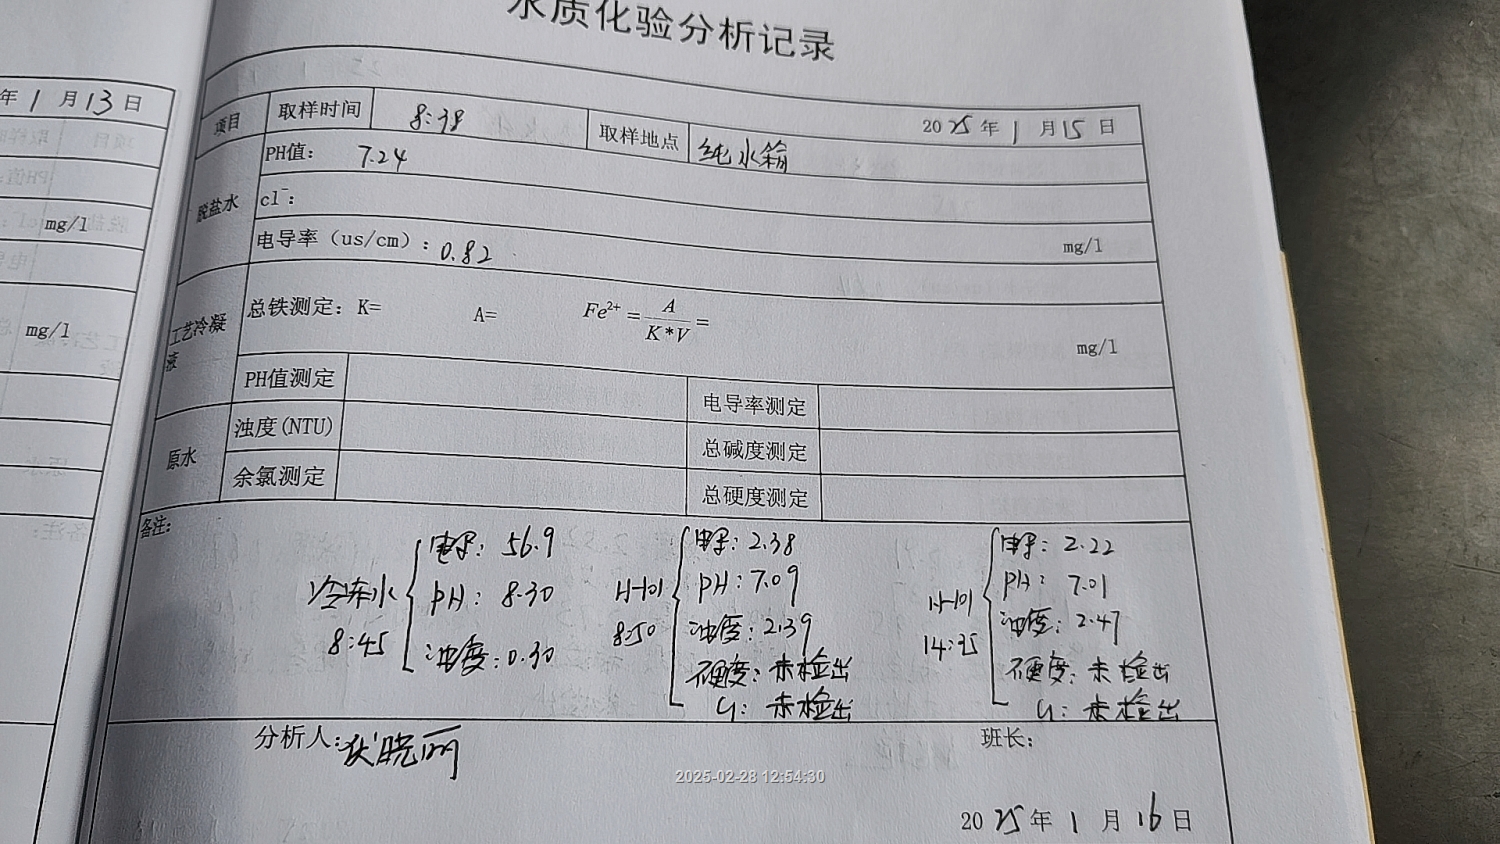 水质化验分析记录
年1月13日
mg/l
mg/l
项目 取样时间 8:38 取样地点 纯水箱 2025年1月15日
脱盐水
PH值: 7.24
cl⁻: mg/l
电导率(us/cm): 0.82
工艺冷凝液
总铁测定: K= A= Fe²⁺=A/K*V= mg/l
PH值测定 电导率测定
原水
浊度(NTU) 总碱度测定
余氯测定 总硬度测定
备注:
冷冻水 8:45
电导: 56.9
PH: 8.30
浊度: 0.30
H-101 8:50
电导: 2.38
PH: 7.09
浊度: 2.39
硬度: 未检出
Cl: 未检出
H-101 14:35
电导: 2.22
PH: 7.01
浊度: 2.47
硬度: 未检出
Cl: 未检出
分析人: 晓丽 班长:
2025-02-28 12:54:30
2025年1月16日